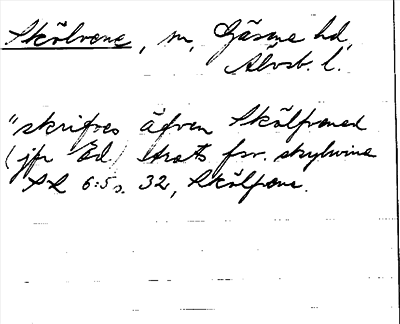 Skölvene, m, Gäsene hd,
Älvsb. l.
"skrifves äfven Skölfvened
(jfr Ed.) strats fsv. skylvine
SL 6:5 s. 32, Skölfvene.